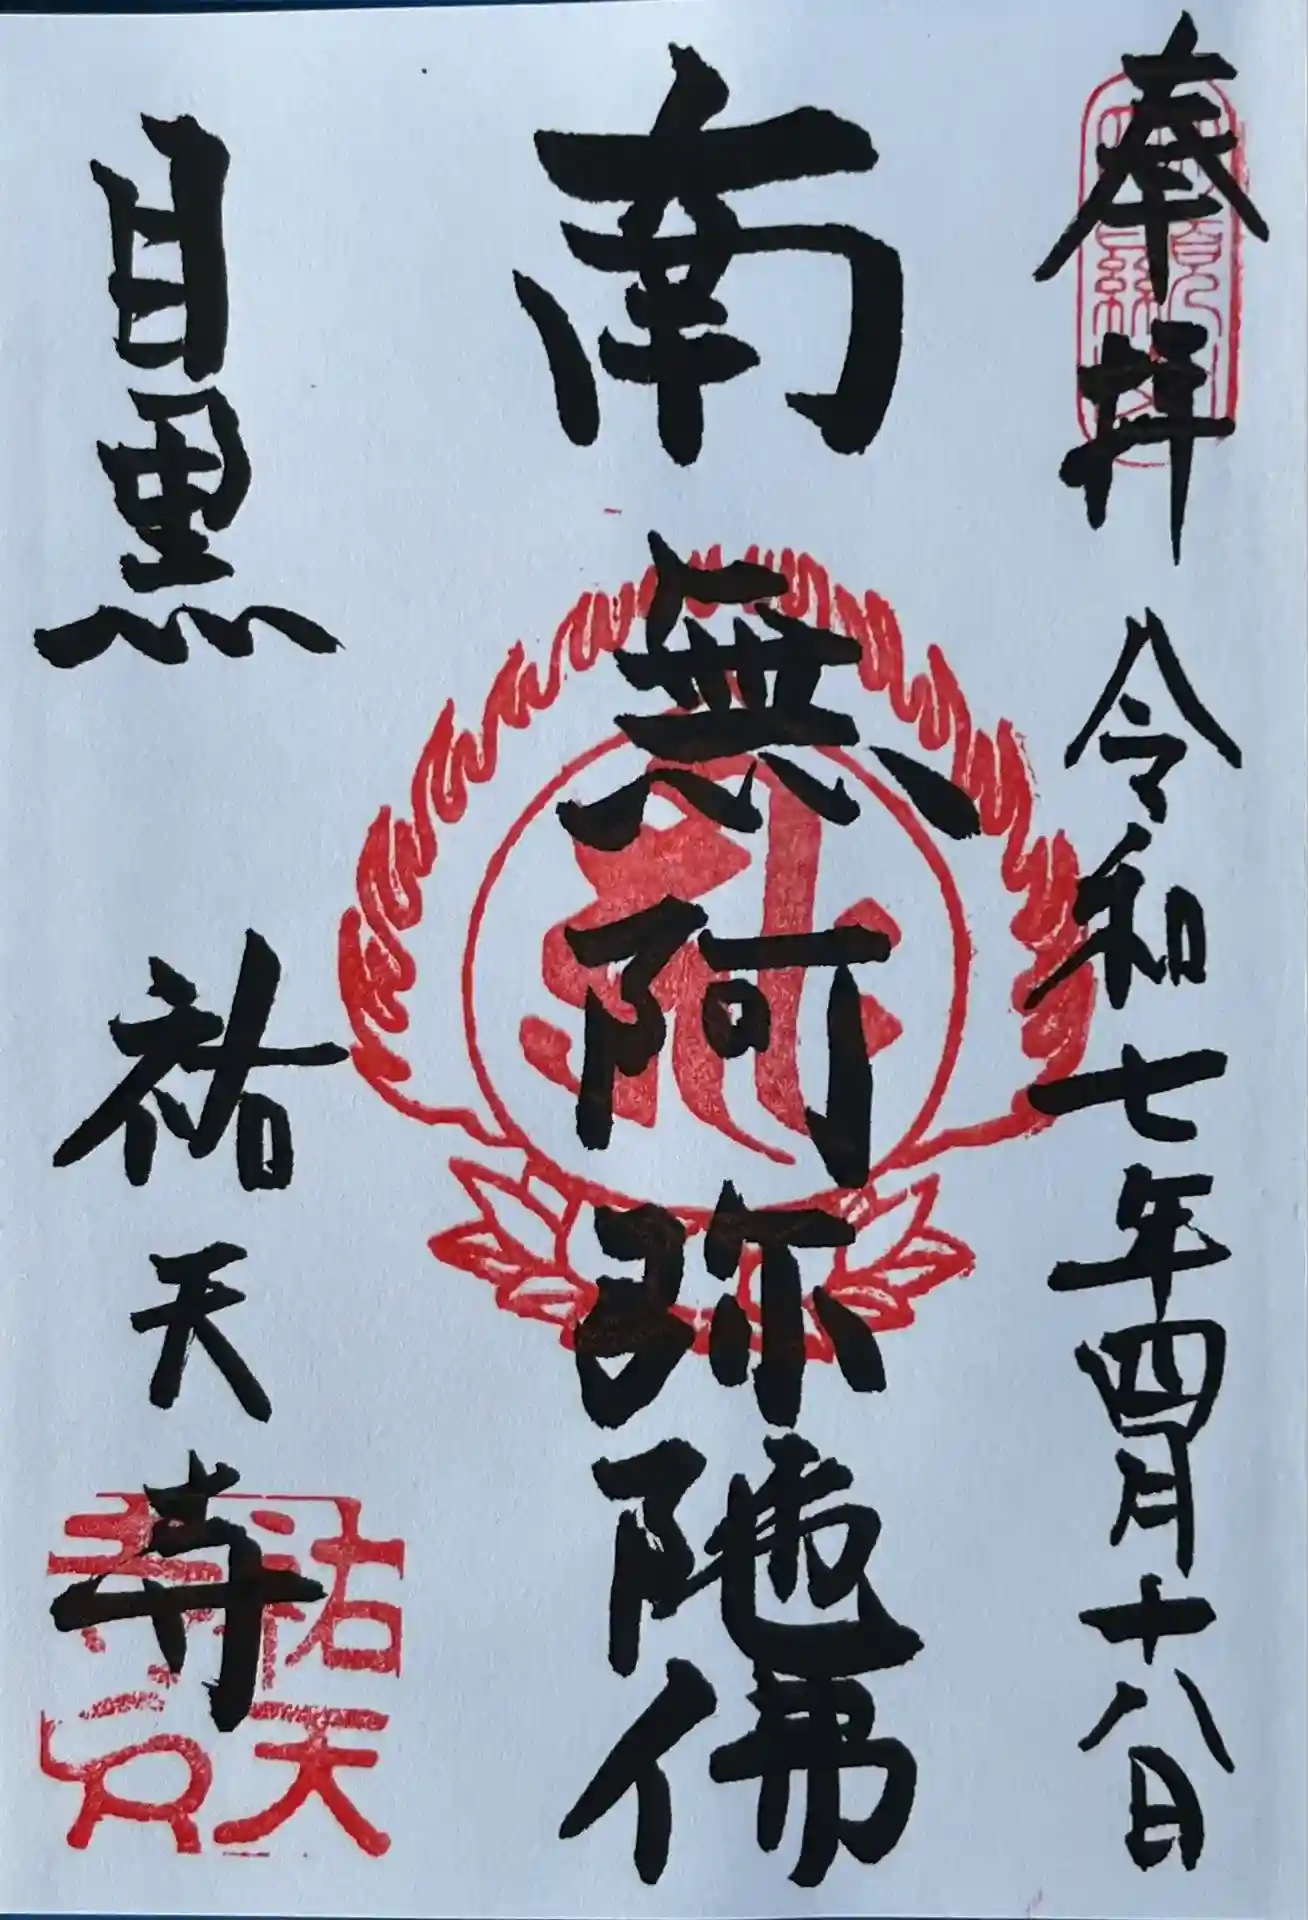 奉拝 令和七年四月十八日
南無阿弥陀佛
目黒 祐天寺
祐天寺印